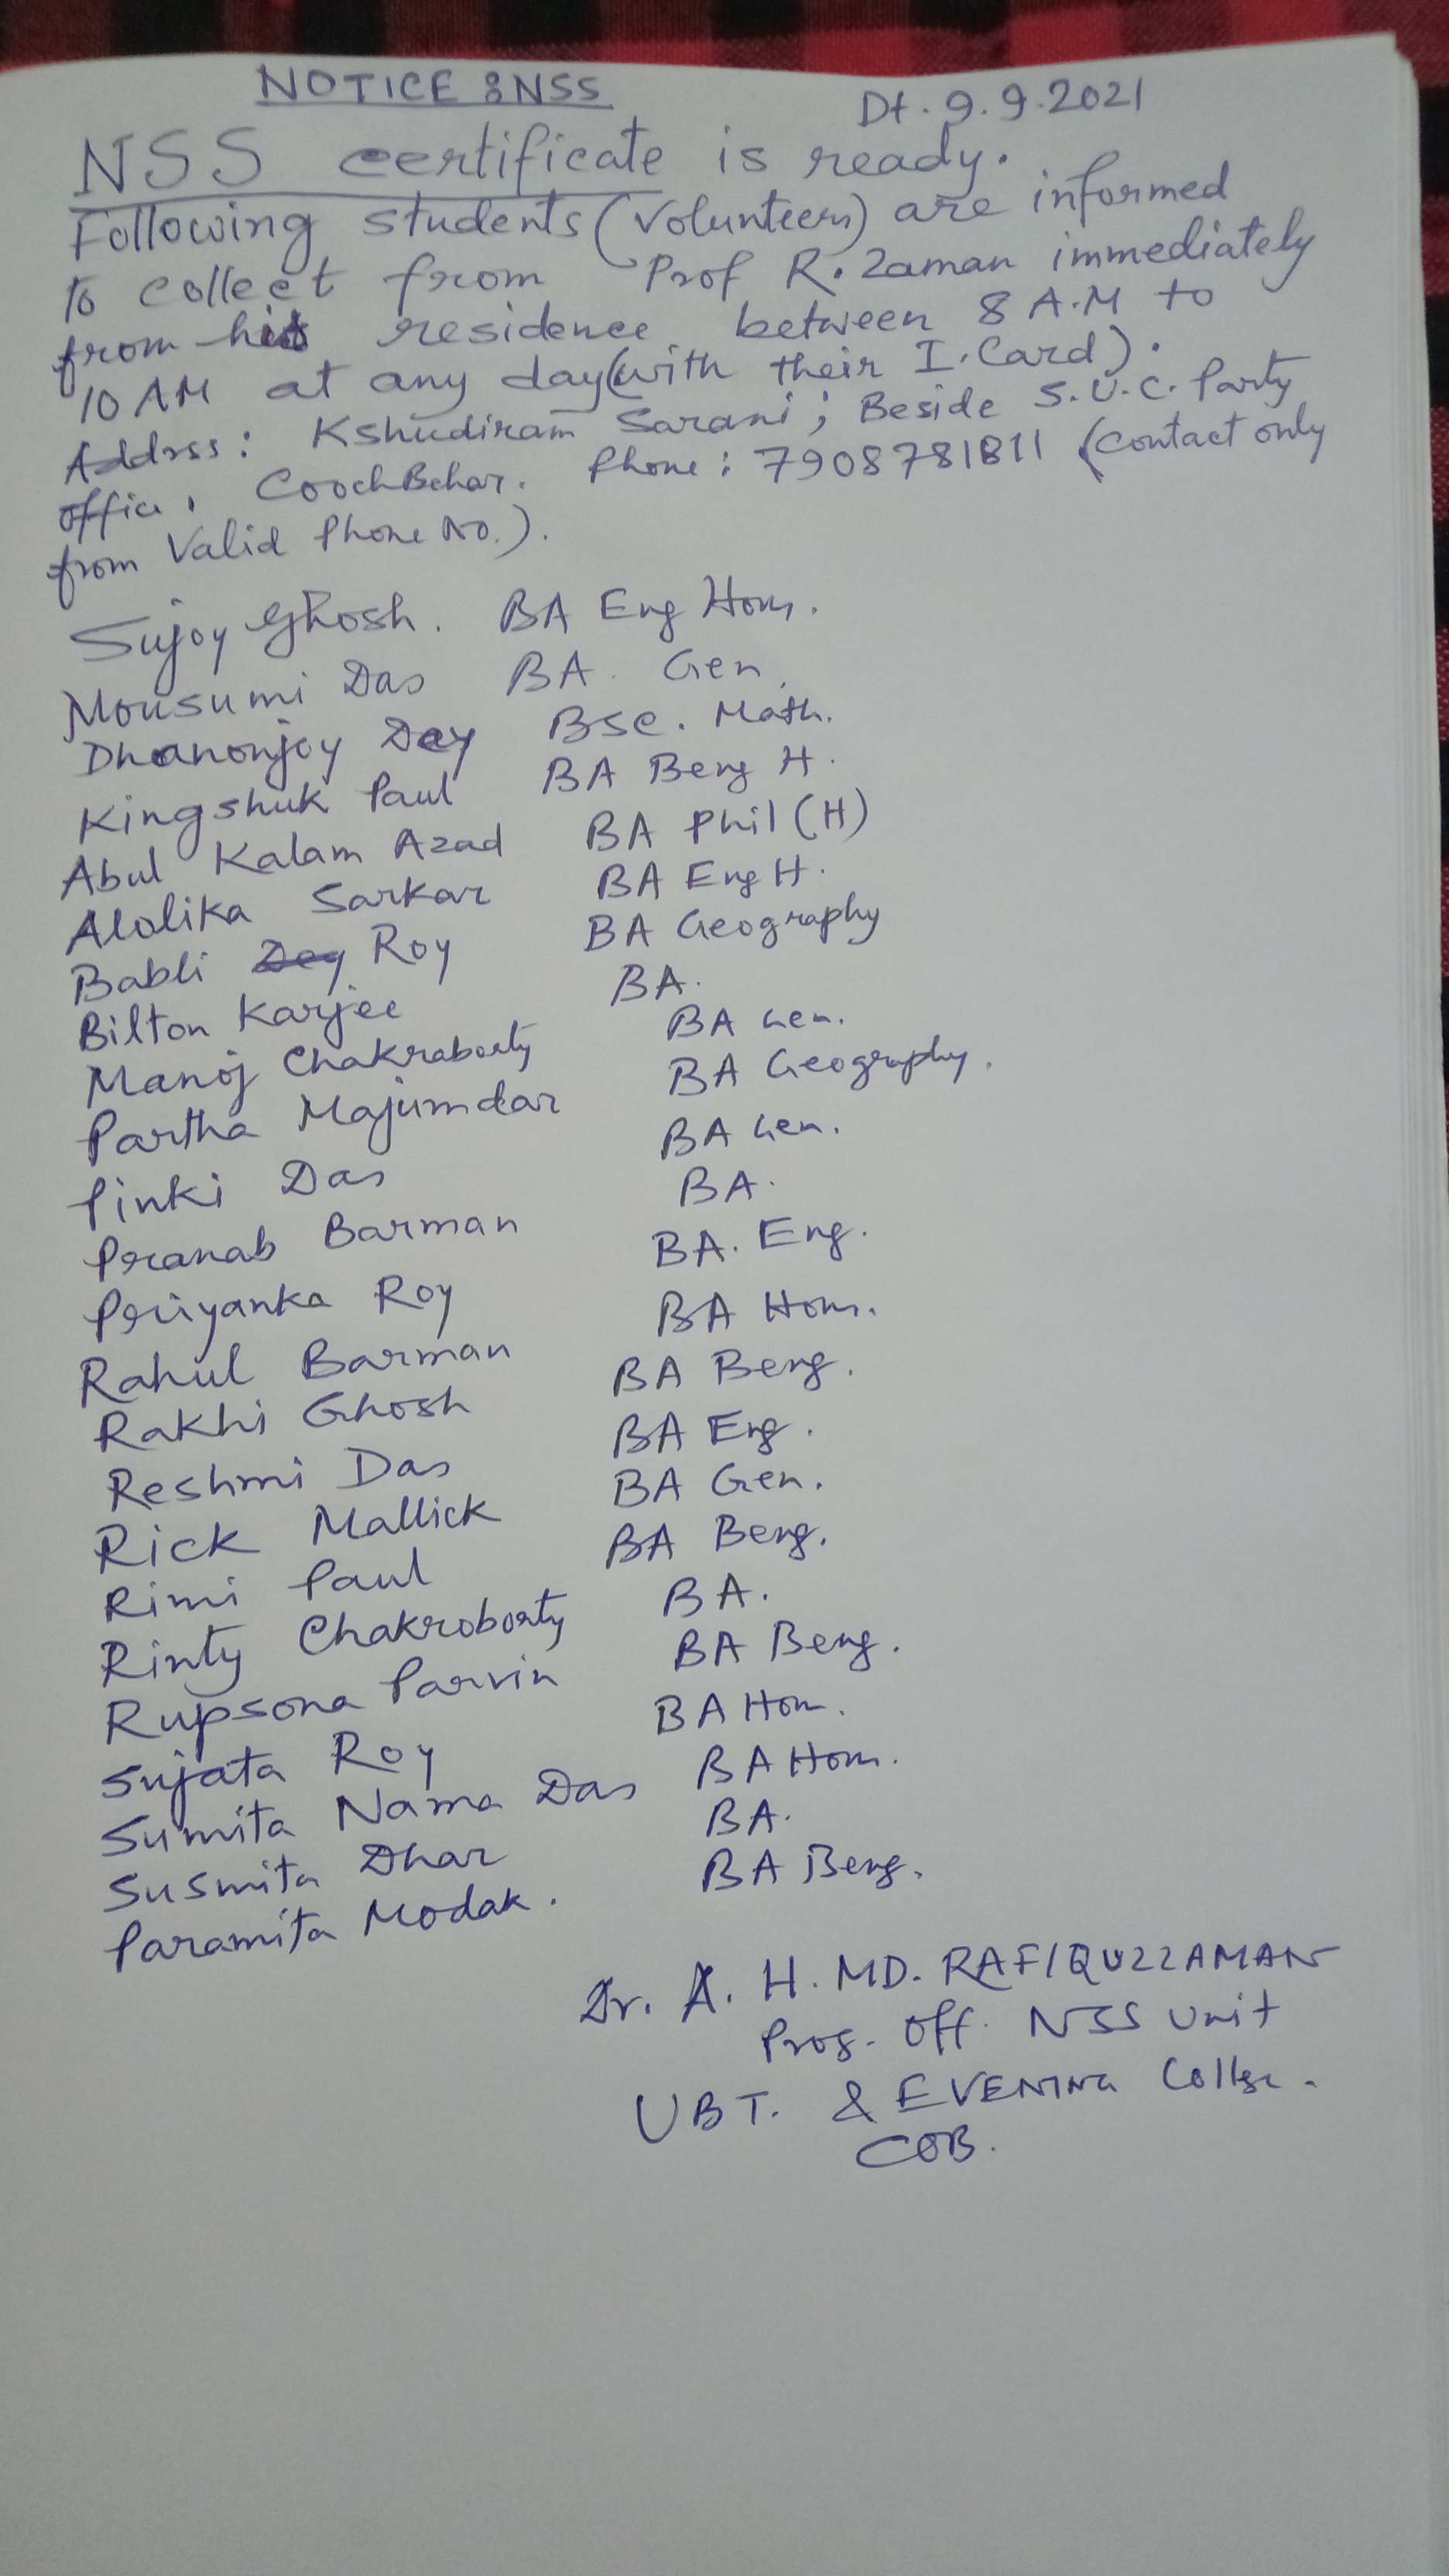 NOTICE : NSS
Dt. 9.9.2021
NSS certificate is ready.
Following students (Volunteers) are informed
to collect from Prof R. Zaman immediately
from his residence between 8 A.M to
10 AM at any day (with their I. Card).
Address: Kshudiram Sarani; Beside S.U.C. Party
office, CoochBehar. Phone: 7908781811 (contact only
from Valid Phone No.).
Sujoy Ghosh. BA Eng Hons.
Mousumi Das BA. Gen.
Dhanonjoy Dey BSc. Math.
Kingshuk Paul BA Beng H.
Abul Kalam Azad BA Phil (H)
Alolika Sarkar BA Eng H.
Babli Dey Roy BA Geography
Bilton Karjee BA.
Manoj Chakraborty BA Gen.
Partha Majumdar BA Geography.
Pinki Das BA Gen.
Pranab Barman BA.
Priyanka Roy BA. Eng.
Rahul Barman BA Hons.
Rakhi Ghosh BA Beng.
Reshmi Das BA Eng.
Rick Mallick BA Gen.
Rimi Paul BA Beng.
Rinty Chakroborty BA.
Rupsona Parvin BA Beng.
Sujata Roy BA Hon.
Sumita Nama Das BA Hon.
Susmita Dhar BA.
Paramita Modak. BA Beng.
Dr. A. H. MD. RAFIQUZZAMAN
Prog. Off. NSS Unit
UBT. & EVENING College.
COB.